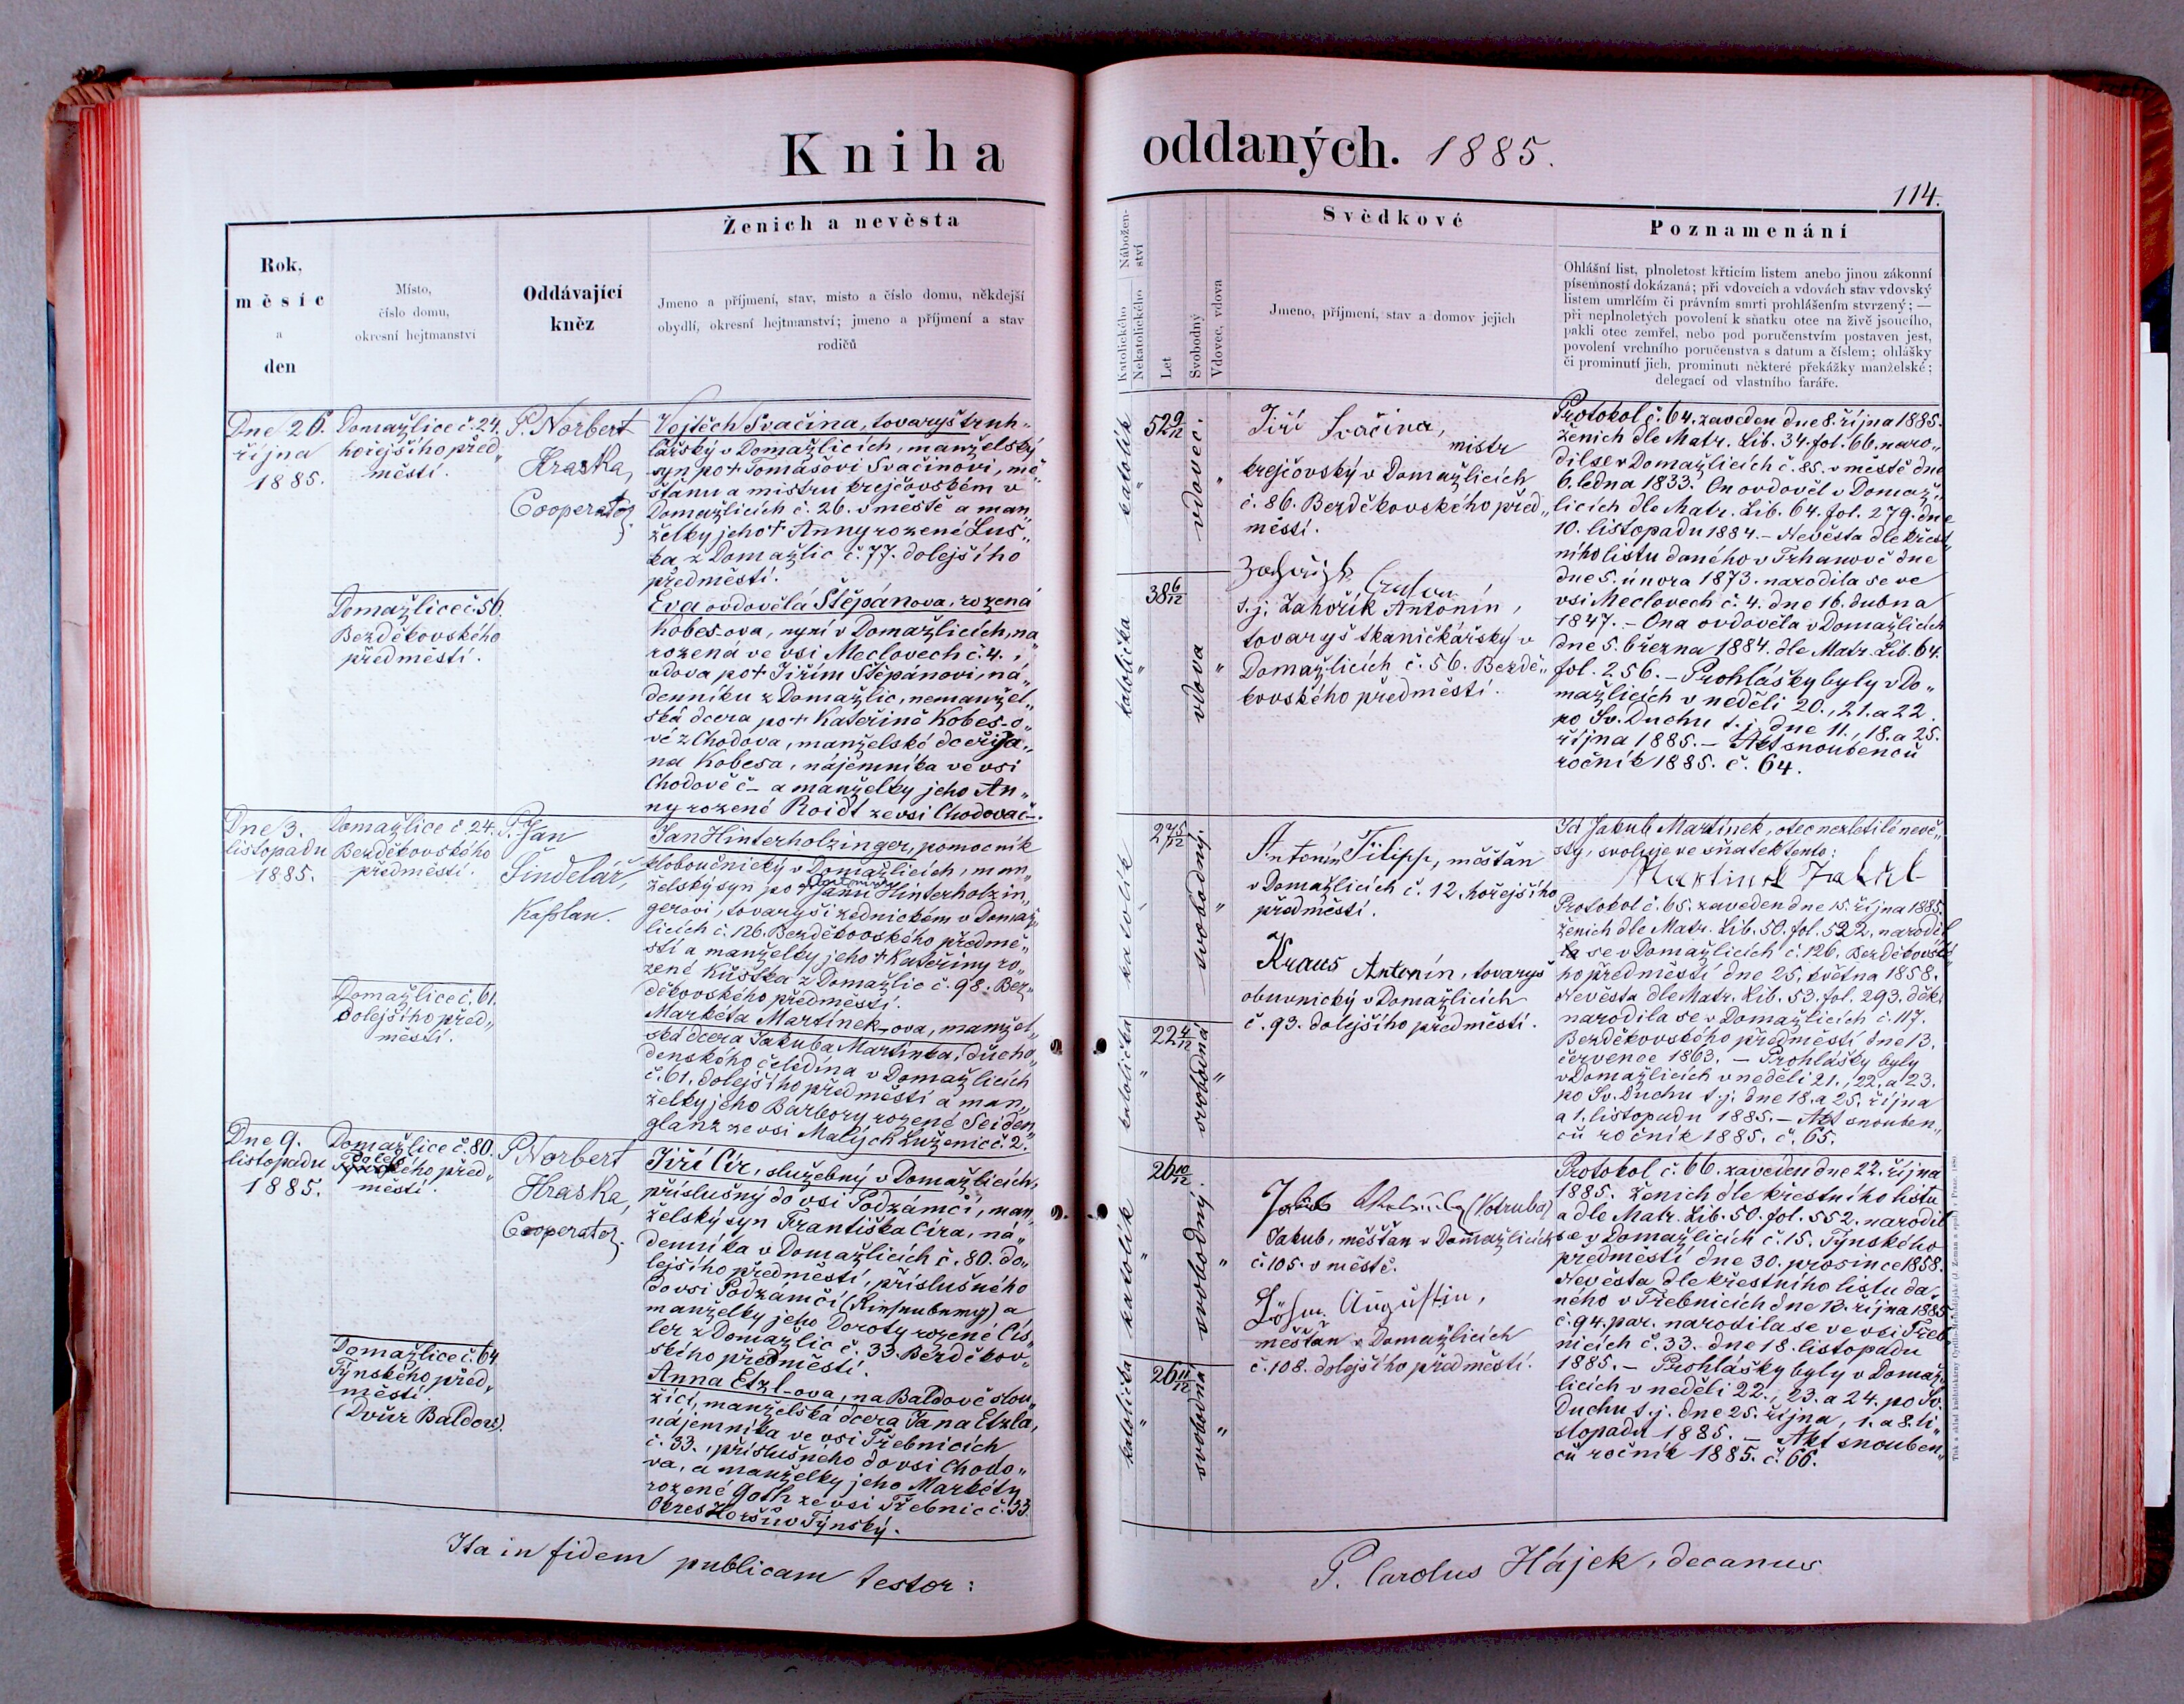 Kniha oddaných. 1885.
114.
Rok,
měsíc
a
den
Místo,
číslo domu,
okresní hejtmanství
Oddávající
kněz
Ženich a nevěsta
Jmeno a příjmení, stav, místo a číslo domu, někdejší
obydlí, okresní hejtmanství; jmeno a příjmení a stav
rodičů
Nábožen-
ství
Katolického
Nekatolického
Let
Svobodný
Vdovec, vdova
Svědkové
Jmeno, příjmení, stav a domov jejich
Poznamenání
Ohlášní list, plnoletost křticím listem anebo jinou zákonní
písemností dokázaná; při vdovcích a vdovách stav vdovský
listem umrlčím či právním smrti prohlášením stvrzený; —
při neplnoletých povolení k sňatku otce na živě jsoucího,
pakli otec zemřel, nebo pod poručenstvím postaven jest,
povolení vrchního poručenstva s datum a číslem; ohlášky
či prominutí jich, prominutí některé překážky manželské;
delegací od vlastního faráře.
Dne 26.
října
1885.
Domažlice č. 24.
hořejšího před„
městí.
P. Norbert
Hraska,
Cooperator
Vojtěch Svačina, tovaryš truh„
lářský v Domažlicích, manželský
syn po † Tomášovi Svačinovi, mě„
šťanu a mistru krejčovském v
Domažlicích č. 26. v městě a man„
želky jeho † Anny rozené Lus„
ka z Domažlic č. 77. dolejšího
předměstí.
Domažlice č. 56.
Bezděkovského
předměstí.
Eva ovdovělá Štěpánova, rozená
Kobes-ova, nyní v Domažlicích, na„
rozená ve vsi Meclovech č. 4.,
vdova po † Jiřím Štěpánovi, ná„
denníku z Domažlic, nemanžel„
ská dcera po † Kateřině Kobes-o„
vé z Chodova, manželské dceři Ja„
na Kobesa, nájemníka ve vsi
Chodově č– a manželky jeho An„
ny rozené Roidt ze vsi Chodova č–.
katolík
"
52 9/12
vdovec.
"
katolička
"
38 6/12
vdova
"
Jiří Svačina,
mistr
krejčovský v Domažlicích
č. 86. Bezděkovského před„
městí.
s. j. Zahořík Antonín,
tovaryš tkaničkářský v
Domažlicích č. 56. Bezdě„
kovského předměstí.
Protokol č. 64. zaveden dne 8. října 1885.
Ženich dle Matr. Lib. 34. fol. 66. naro„
dil se v Domažlicích č. 85. v městě dne
6. ledna 1833. On ovdověl v Domaž„
licích dle Matr. Lib. 64. fol. 279. dne
10. listopadu 1884. – Nevěsta dle křest„
ního listu daného v Trhanově dne
dne 5. února 1873. narodila se ve
vsi Meclovech č. 4. dne 16. dubna
1847. – Ona ovdověla v Domažlicích
dne 5. března 1884. dle Matr. Lib. 64.
fol. 256. – Prohlášky byly v Do„
mažlicích v neděli 20., 21. a 22.
po Sv. Duchu t. j. dne 11., 18. a 25.
října 1885. – Akt snoubenců
ročník 1885. č. 64.
Dne 3.
listopadu
1885.
Domažlice č. 24.
Bezděkovského
předměstí.
P. Jan
Šindelář,
Kaplan.
Jan Hinterholzinger, pomocník
kloboučnický v Domažlicích, man„
želský syn po † Janu Hinterholzin„
gerovi, tovaryši zednickém v Domaž„
licích č. 126. Bezděkovského předmě„
stí a manželky jeho † Kateřiny ro„
zené Křistka z Domažlic č. 98. Bez„
děkovského předměstí.
Domažlice č. 61.
Dolejšího před„
městí.
Markéta Martínek-ova, manžel„
ská dcera Jakuba Martínka, důcho„
denského čeledína v Domažlicích
č. 61. dolejšího předměstí a man„
želky jeho Barbory rozené Seiden„
glanz ze vsi Malých Luženic č. 2.
katolík
"
27 5/12
svobodný.
"
katolička
"
22 4/12
svobodná
"
Antonín Filipp, měšťan
v Domažlicích č. 12. hořejšího
předměstí.
Kraus Antonín, tovaryš
obuvnický v Domažlicích
č. 93. dolejšího předměstí.
Já Jakub Martínek, otec nezletilé nevě„
sty, svoluji ve sňatek tento:
Martinek Jakub
Protokol č. 65. zaveden dne 15. října 1885.
Ženich dle Matr. Lib. 50. fol. 522. narodil
se v Domažlicích č. 126. Bezděkovské„
ho předměstí dne 25. května 1858.
Nevěsta dle Matr. Lib. 53. fol. 293. děk.
narodila se v Domažlicích č. 117.
Bezděkovského předměstí dne 13.
července 1863. – Prohlášky byly
v Domažlicích v neděli 21., 22. a 23.
po Sv. Duchu t. j. dne 18. a 25. října
a 1. listopadu 1885. – Akt snouben„
ců ročník 1885. č. 65.
Dne 9.
listopadu
1885.
Domažlice č. 80.
dolejšího před„
městí.
P. Norbert
Hraska,
Cooperator.
Jiří Cír, služebný v Domažlicích,
příslušný do vsi Podzámčí, man„
želský syn Františka Círa, ná„
denníka v Domažlicích č. 80. do„
lejšího předměstí, příslušného
do vsi Podzámčí (Riesenberg) a
manželky jeho Doroty rozené Cis„
ler z Domažlic č. 33. Bezděkov„
ského předměstí.
Domažlice č. 64
Týnského před„
městí.
(Dvůr Baldov).
Anna Etzl-ova, na Baldově slou„
žící, manželská dcera Jana Etzla,
nájemníka ve vsi Třebnicích
č. 33., příslušného do vsi Chodo„
va, a manželky jeho Markéty
rozené Goth ze vsi Třebnic č. 33.
Okres Horšův Týnský.
katolík
"
26 10/12
svobodný.
"
katolička
"
26 11/12
svobodná
"
(Kotruba)
Jakub, měšťan v Domažlicích
č. 105. v městě.
Augustin,
měšťan v Domažlicích
č. 108. dolejšího předměstí.
Protokol č. 66. zaveden dne 22. října
1885. Ženich dle křestního listu
a dle Matr. Lib. 50. fol. 552. narodil
se v Domažlicích č. 15. Týnského
předměstí dne 30. prosince 1858.
Nevěsta dle křestního listu da„
ného v Třebnicích dne 13. října 1885
č. 94. par. narodila se ve vsi Třeb„
nicích č. 33. dne 18. listopadu
1885. – Prohlášky byly v Domaž„
licích v neděli 22., 23. a 24. po Sv.
Duchu t. j. dne 25. října, 1. a 8. li„
stopadu 1885. – Akt snouben„
ců ročník 1885. č. 66.
Ita in fidem publicam testor:
P. Carolus Hájek, decanus